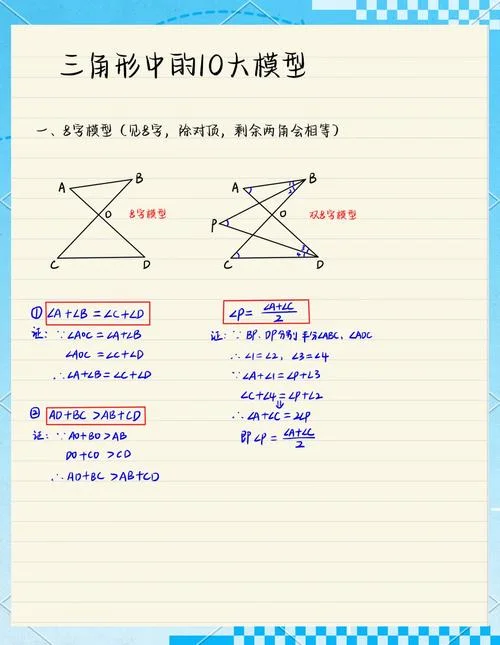 三角形中的10大模型
一、8字模型（见8字，除对顶，剩余两角会相等）
A
B
O
8字模型
C
D
A
B
O
P
双8字模型
C
D
1
2
3
4
① ∠A+∠B=∠C+∠D
证：∵∠AOC=∠A+∠B
∠AOC=∠C+∠D
∴∠A+∠B=∠C+∠D
② AD+BC>AB+CD
证：∵AO+BO>AB
DO+CO>CD
∴AD+BC>AB+CD
∠P=(∠A+∠C)/2
证：∵BP、DP分别平分∠ABC、∠ADC
∴∠1=∠2，∠3=∠4
∵∠A+∠1=∠P+∠3
∠C+∠4=∠P+∠2
⇓
∴∠A+∠C=2∠P
即∠P=(∠A+∠C)/2